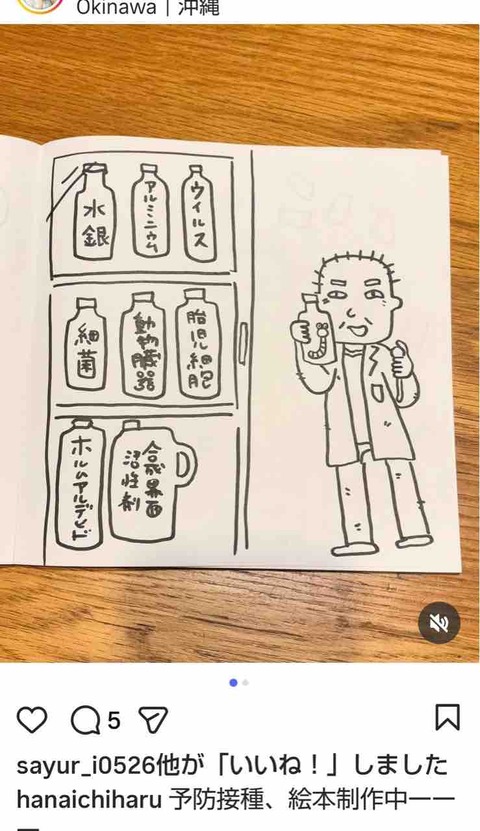 Okinawa | 沖縄
水銀
アルミニウム
ウイルス
細菌
動物臓器
胎児細胞
ホルムアルデヒド
合成界面
活性剤
5
sayur_i0526他が「いいね！」しました
hanaichiharu 予防接種、絵本制作中ーー
ー